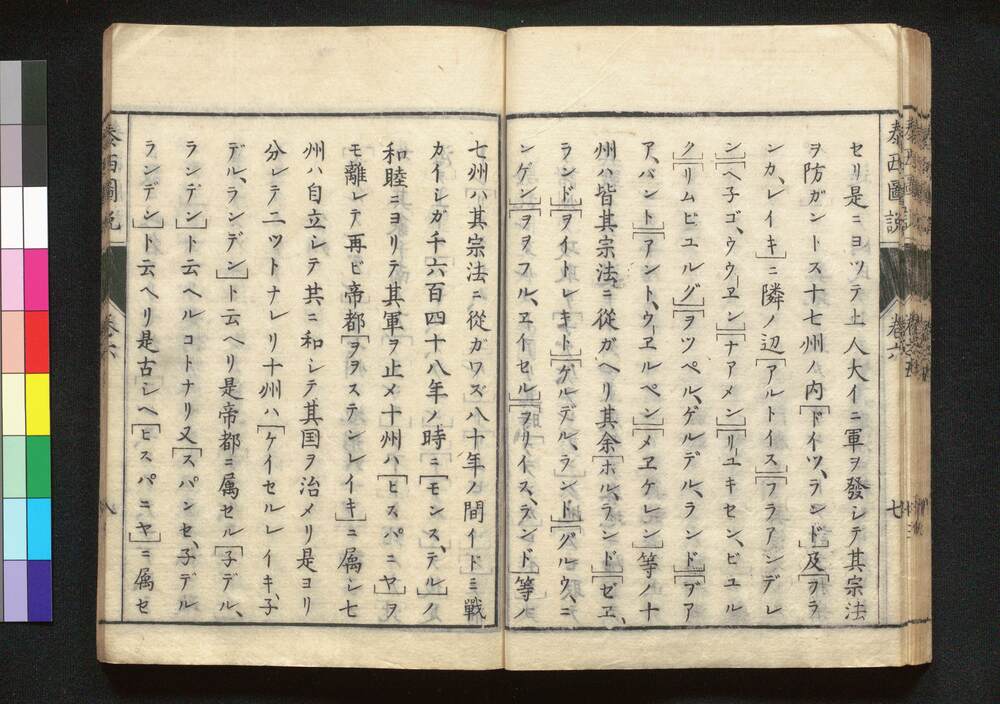 セリ是ニヨツテ土人大イニ軍ヲ發シテ其宗法
ヲ防ガントス十七州ノ内[ドイツ、ランド]及[フラ
ンカ、レイキ]ニ隣ノ辺[アルトイス][フラアンデレ
ン][ヘ子ゴ、ウウヱン][ナアメン][リユキセン、ビユル
ク][リムビユルグ][ヲツペル、ゲルデル、ランド][ブア
ア、バント][アント、ウヱルペン][メヱケレン]等ノ十
州ハ皆其宗法ニ從ガヘリ其余[ホル、ランド][ゼヱ、
ランド][ヲイトレキト][ゲルデル、ランド][グルウ、ニ
ンゲン][ヲヲフル、ヱイセル][ヲリイス、ランド]等ノ
七州ハ其宗法ニ從ガワズ八十年ノ間イド[ミ]戰
カイシガ千六百四十八年ノ時ニ[モンス、テル]ノ
和睦ニヨリテ其軍ヲ止メ十州ハ[ヒスパニヤ]ヲ
モ離レテ再ビ帝都[ヲヲステンレイキ]ニ属シ七
州ハ自立シテ共ニ和シテ其国ヲ治メリ是ヨリ
分レテ二ツトナレリ十州ハ[ケイセルレイキ、子
デル、ランデン]ト云ヘリ是帝都ニ属セル[子デル、
ランデン]ト云ヘルコトナリ又[スパンセ、子デル
ランデン]ト云ヘリ是古シヘ[ヒスパニヤ]ニ属セ
泰西圖説
卷六
七
泰西圖説
卷六
八